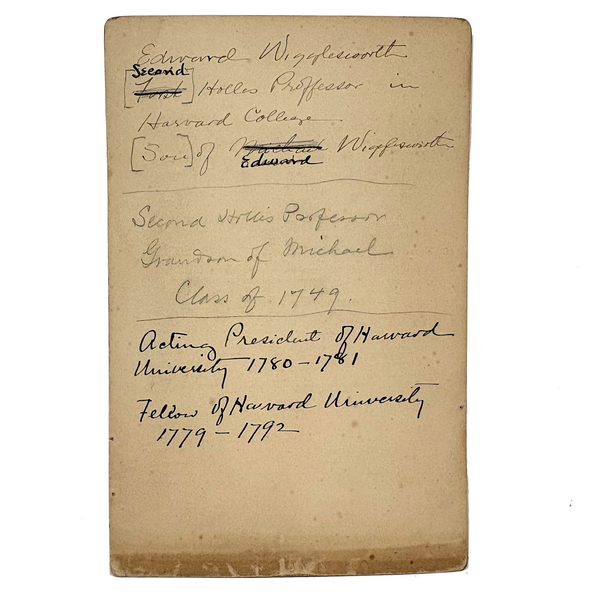 Edward Wigglesworth
Second
[First] Hollis Proffessor in
Harvard College
[Son] of Michael Wigglesworth
Edward
Second Hollis Professor
Grandson of Michael
Class of 1749.
Acting President of Harvard
University 1780-1781
Fellow of Harvard University
1779-1792